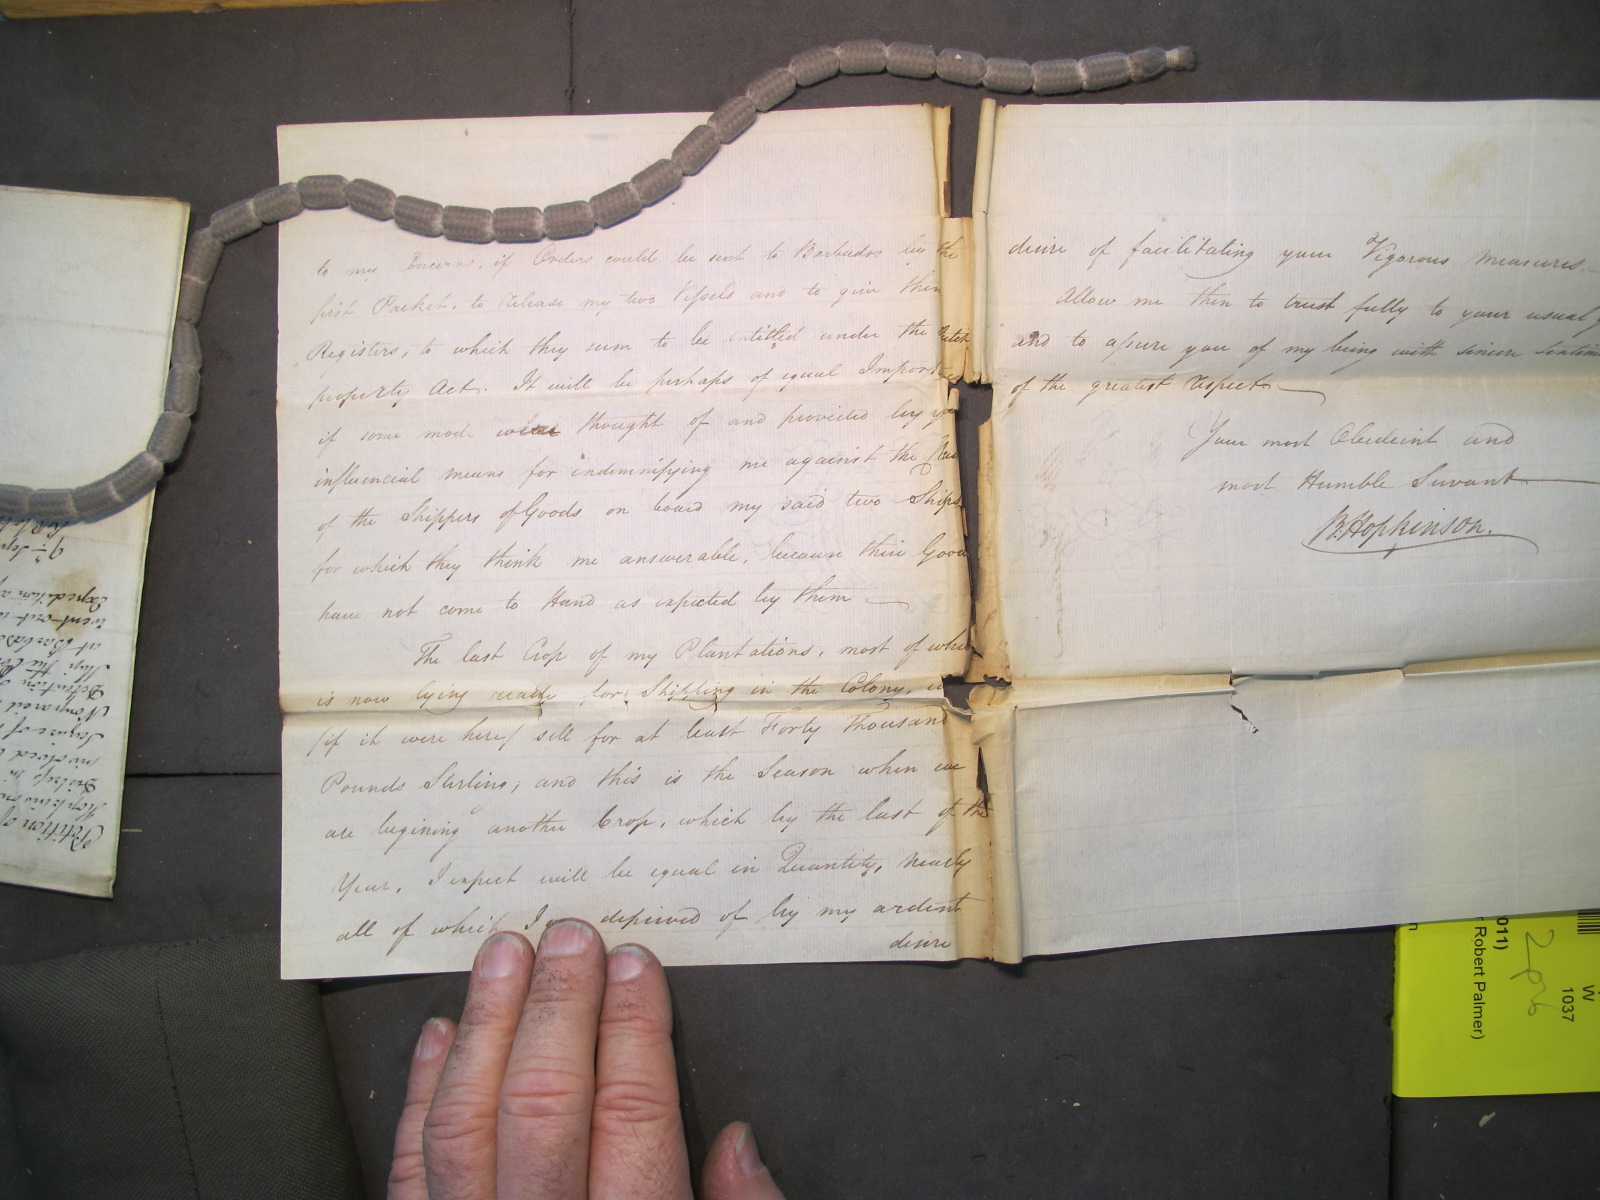 to my Concerns, if Orders could be sent to Barbados by the
first Packet, to release my two Vessels and to give them
Registers, to which they seem to be entitled under the Dutch
property Act. It will be perhaps of equal Importce
if some mode were thought of and provided by yr
influencial means for indemnifying me against the Clai
of the Shippers of Goods on board my said two Ships
for which they think me answerable, because their Good
have not come to Hand as expected by them
The last Crop of my Plantations, most of whic
is now lying ready for Shipping in the Colony, w
/if it were here/ sell for at least Forty Thousand
Pounds Sterling; and this is the Season when we
are begining another Crop, which by the last of the
Year, I expect will be equal in Quantity, nearly
all of which I deprived of by my ardent
desire
desire of facilitating your Vigorous Measures.
Allow me then to trust fully to your usual
and to assure you of my being with sincere Sentim
of the greatest respect
Your most Obedeint and
most Humble Servant
B. Hopkinson.
Petition of
Hopkinson
Distress in
involved
Seizure of
Nonpareil
Detention
Ship the
at Barbado
went out
Expedition
9th Sep
011)
Robert Palmer)
206
W
1037
n